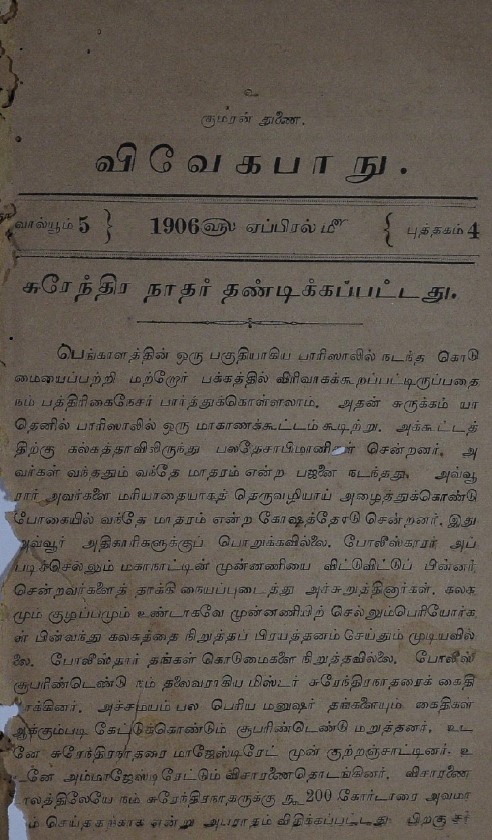 உ
குமரன் துணை.
விவேகபாநு.
வால்யூம் 5 } 1906௵ ஏப்பிரல் ௴ { புத்தகம் 4
சுரேந்திர நாதர் தண்டிக்கப்பட்டது.
பெங்காளத்தின் ஒரு பகுதியாகிய பாரிஸாலில் நடந்த கொடு
மையைப்பற்றி மற்றோர் பக்கத்தில் விரிவாகக்கூறப்பட்டிருப்பதை
நம் பத்திரிகைநேசர் பார்த்துக்கொள்ளலாம். அதன் சுருக்கம் யா
தெனில் பாரிஸாலில் ஒரு மாகாணக்கூட்டம் கூடிற்று. அக்கூட்டத்
திற்கு கல்கத்தாவிலிருந்து பலதேசாபிமானிகள் சென்றனர். அ
வர்கள் வந்ததும் வந்தே மாதரம் என்ற பஜனை நடந்தது. அவ்வூ
ரார் அவர்களை மரியாதையாகத் தெருவழியாய் அழைத்துக்கொண்டு
போகையில் வந்தே மாதரம் என்ற கோஷத்தோடு சென்றனர். இது
அவ்வூர் அதிகாரிகளுக்குப் பொறுக்கவில்லை. போலீஸ்காரர் அப்
படிச்செல்லும் மகாநாட்டின் முன்னணியை விட்டுவிட்டுப் பின்னர்
சென்றவர்களைத் தாக்கி நையப்புடைத்து அர்சுறுத்தினார்கள். கலக
மும் குழப்பமும் உண்டாகவே முன்னணியிற் செல்லும்பெரியோர்க
ள் பின்வந்து கலகத்தை நிறுத்தப் பிரயத்தனம் செய்தும் முடியவில்
லை. போலீஸ்தார் தங்கள் கொடுமைகளை நிறுத்தவில்லை. போலீஸ்
சூபரிண்டெண்டு நம் தலைவராகிய மிஸ்டர் சுரேந்திரநாதரைக் கைதி
யாக்கினர். அச்சமயம் பல பெரிய மனுஷர் தங்களையும் கைதிகள்
ஆக்கும்படி கேட்டுக்கொண்டும் சூபரிண்டெண்டு மறுத்தனர். உட
னே சுரேந்திரநாதரை மாஜேஸ்டிரேட் முன் குற்றஞ்சாட்டினர். உ
டனே அம்மாஜேஸ்டிரேட்டும் விசாரணைதொடங்கினர். விசாரணை
காலத்திலேயே நம் சுரேந்திரநாதருக்கு ரூ 200 கோர்டாரை அவமா
செய்ததற்காக என்று அபராதம் விதிக்கப்பட்டது. பிறகு சர்